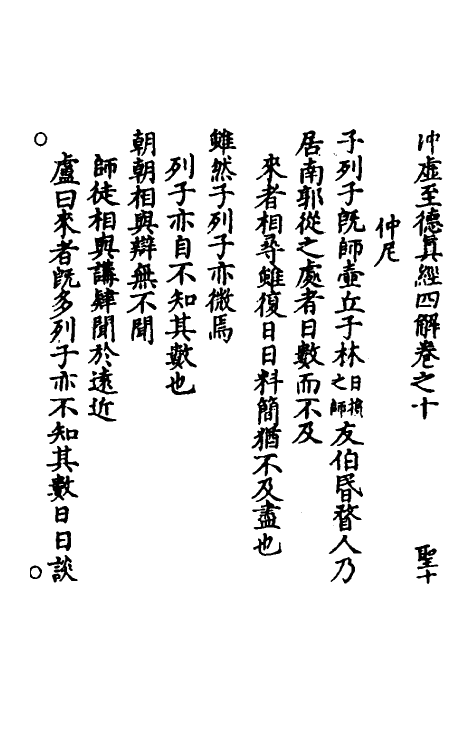 冲虛至德真經四解卷之十 聖十
仲尼
子列子旣師壺丘子林日損之師友伯昏瞀人乃
居南郭從之處者日數而不及
來者相尋雖復日日料簡猶不及盡也
雖然子列子亦微焉
列子亦自不知其數也
朝朝相與辯無不聞
師徒相與講肄聞於遠近
盧曰來者旣多列子亦不知其數日日談